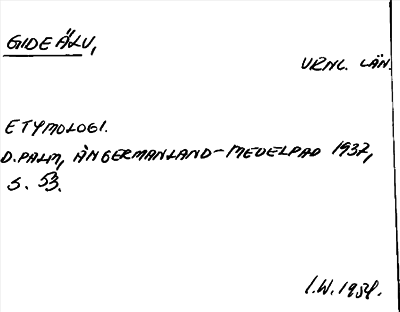 GIDEÄLV,
VRNL. LÄN.
ETYMOLOGI.
D. PALM, ÅNGERMANLAND-MEDELPAD 1937,
S. 53.
I.W. 1954.